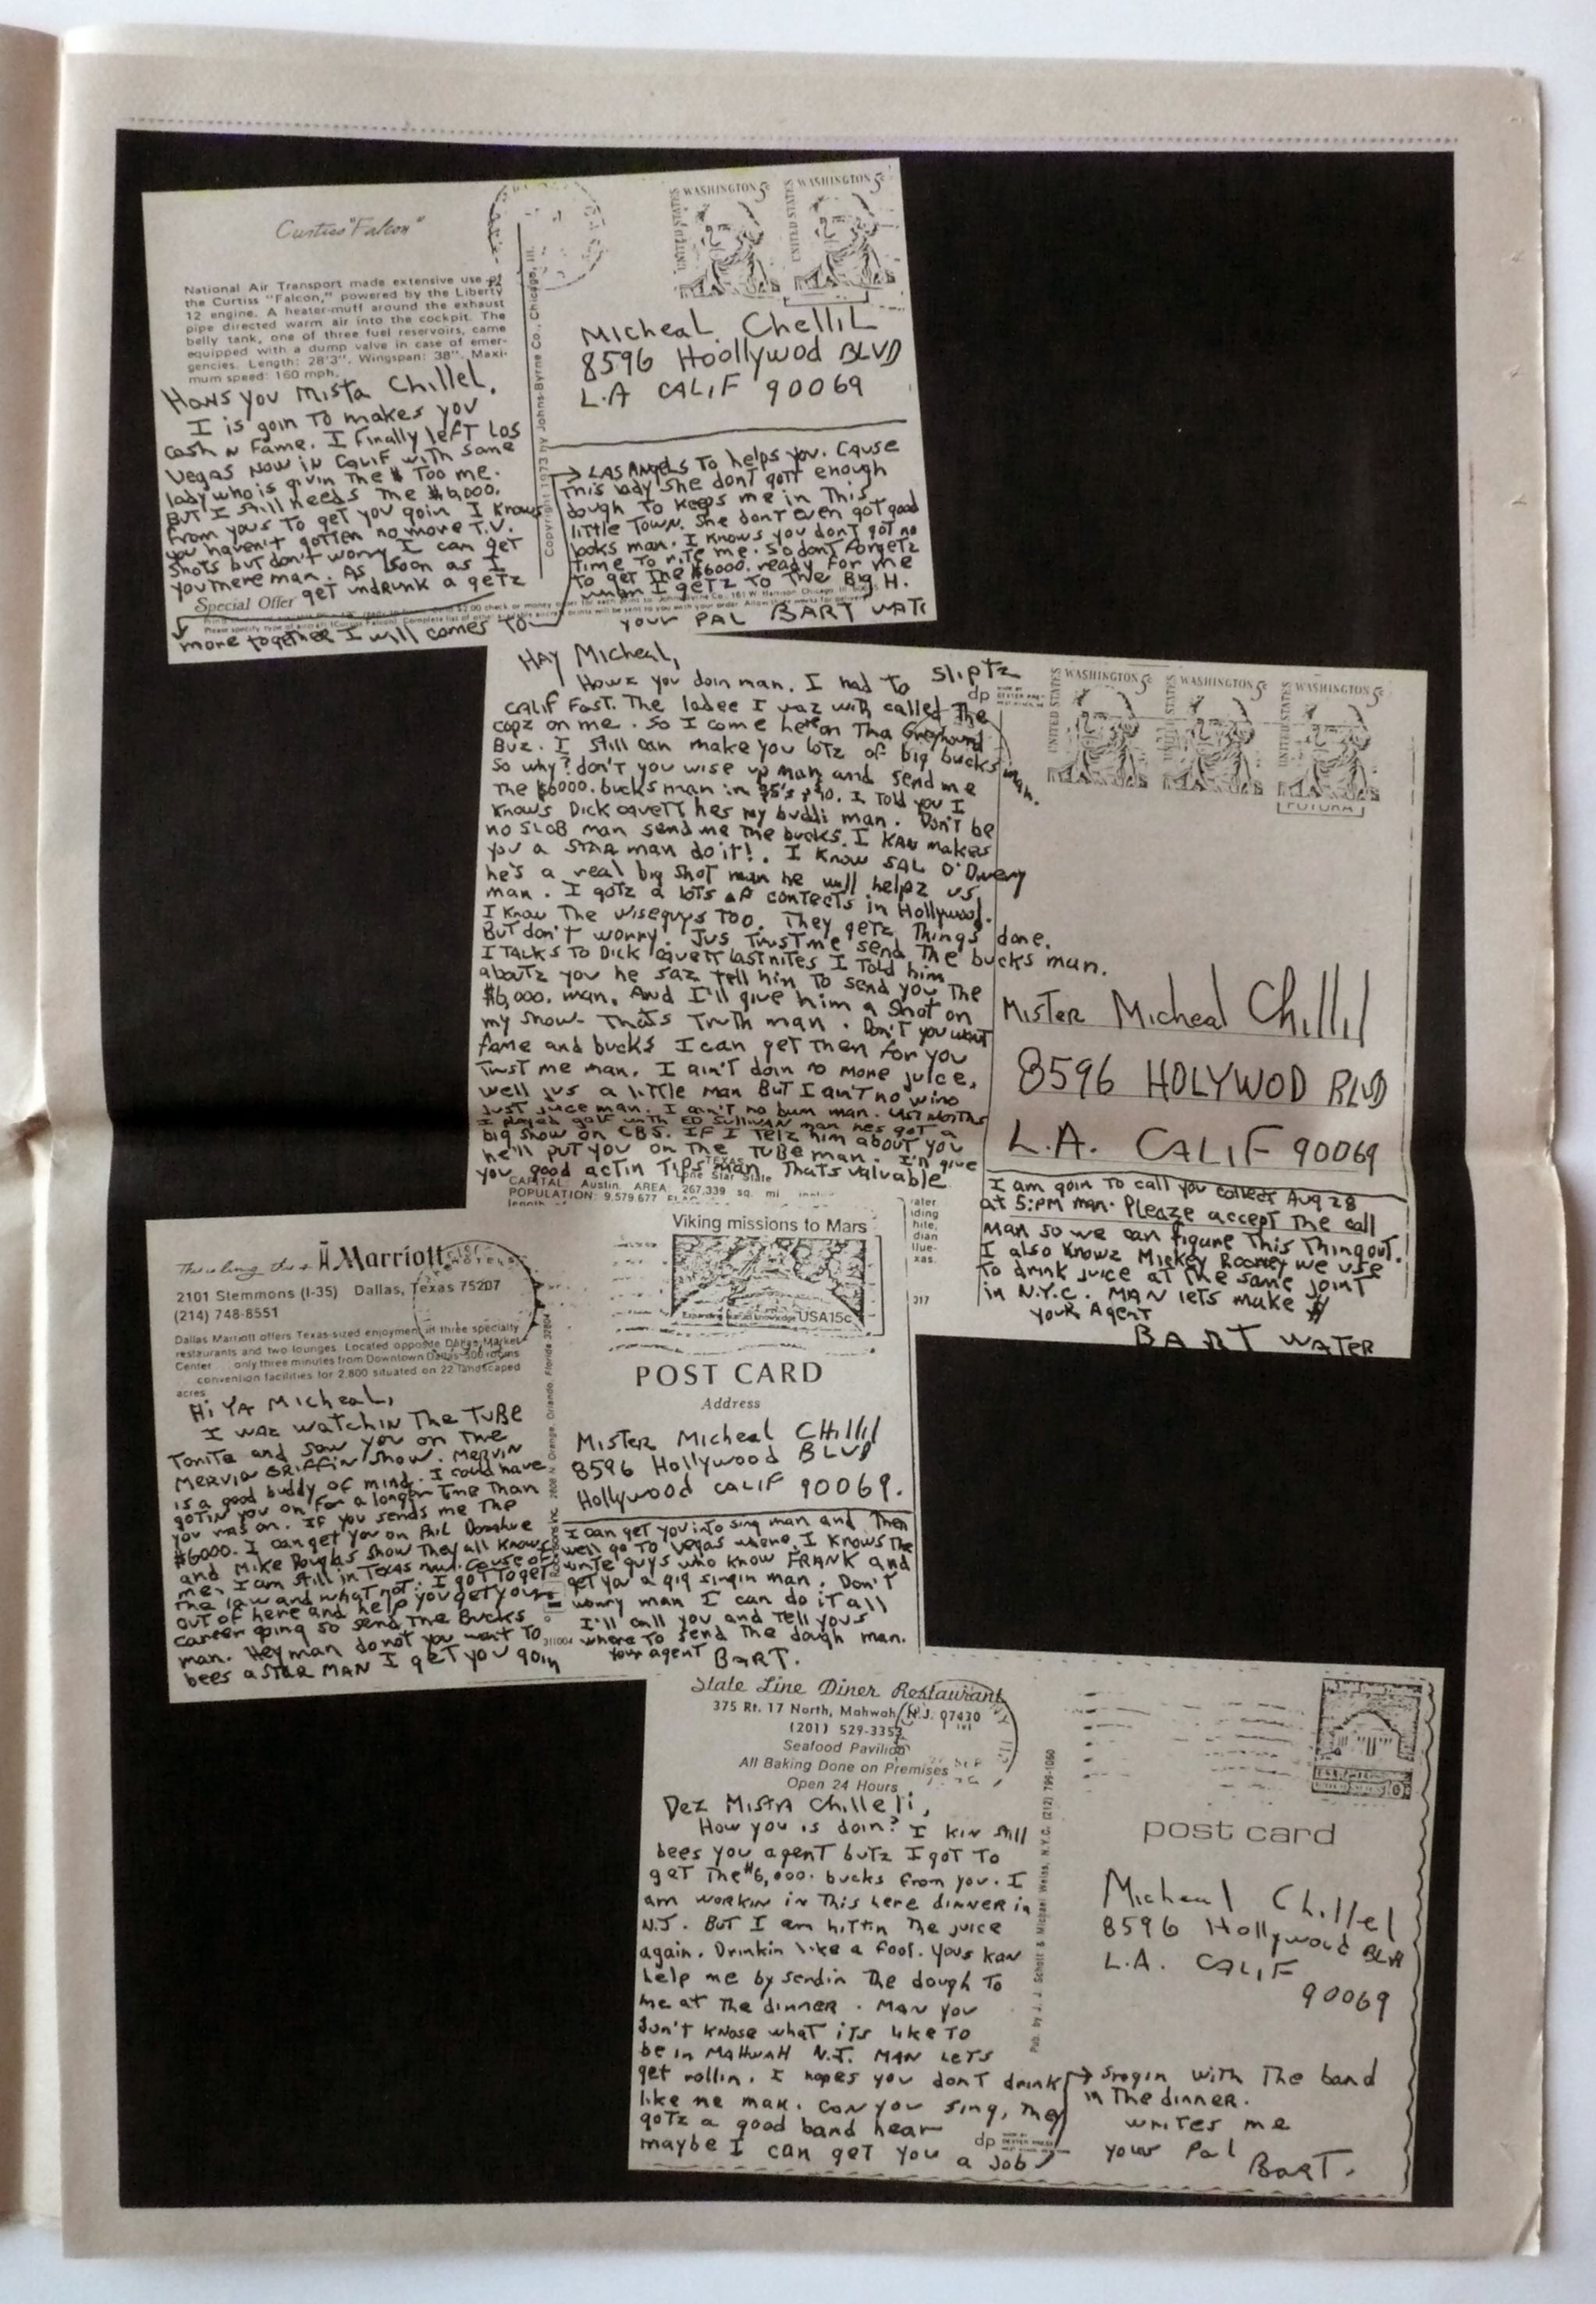 Curtiss "Falcon"
National Air Transport made extensive use of
the Curtiss "Falcon," powered by the Liberty
12 engine. A heater-muff around the exhaust
pipe directed warm air into the cockpit. The
belly tank, one of three fuel reservoirs, came
equipped with a dump valve in case of emer-
gencies. Length: 28'3". Wingspan: 38". Maxi-
mum speed: 160 mph.
Hows you Mista Chillel,
I is goin To makes you
cash n Fame. I Finally left Los
Vegas now in Calif with some
lady who is givin The $ Too me.
But I still needs The $6,000.
From yous To get you goin I knows
you haven't gotten no more T.V.
shots but don't worry I can get
you there man. As soon as I
get undrunk a getz
Special Offer
more together I will comes To
Copyright 1973 by Johns-Byrne Co., Chicago, Ill.
UNITED STATES WASHINGTON 5c
UNITED STATES WASHINGTON 5c
Micheal Chellil
8596 Hoollywod BLVD
L.A CALIF 90069
→ LAS Angels To helps you. Cause
This lady she dont gott enough
dough To keeps me in This
little Town. She dont even got good
looks man. I knows you don't got no
Time To rite me. So dont forgetz
To get The $6000. ready for me
when I getz To The Big H.
your PAL BART WATE
HAY Micheal,
Howz you doin man. I had to sliptz
CALIF Fast. The ladee I waz with called The
copz on me. So I come here on Tha Greyhound
Buz. I still can make you lotz of big bucks man.
So why? don't you wise up man and send me
The $6000. bucks man in $5's $10. I Told you I
knows Dick cavett hes my buddi man. Don't be
no SLOB man send me The bucks. I KAN makes
you a STAR man do it!. I know SAL O'Dweny
he's a real big shot man he will helpz us
man. I gotz a lots of contects in Hollywood.
I know The wiseguys Too. They getz Things done.
But don't worry. Jus Trust me send The bucks man.
I TALKS To Dick cavett last nites I Told him
aboutz you he saz tell him To send you The
$6,000. man. And I'll give him a Shot on
my show. That's Truth man. Don't you want
fame and bucks I can get Them for you
Trust me man. I ain't doin no more juice,
well jus a little man But I ain't no wino
Just juice man. I ain't no bum man. Last months
I played golf with ED SulliVAN man hes got a
big show on CBS. IF I Telz him about you
he'll put you on The TUBE man. I'll give
you good actin Tips man. Thats valuable
TEXAS
CAPITAL: Austin. AREA: 267,339 sq. mi
POPULATION: 9,579,677
dp
UNITED STATES WASHINGTON 5c
UNITED STATES WASHINGTON 5c
UNITED STATES WASHINGTON 5c
Mister Micheal Chillil
8596 HOLYWOD BLVD
L.A. CALIF 90069
I am goin To call you collect Aug 28
at 5:PM man. Pleaze accept The call
man so we can figure This Thing out.
I also knowz Mickey Rooney we use
To drink juice at The same joint
in N.Y.C. MAN lets make $
your Agent
BART WATER
Marriott
2101 Stemmons (I-35) Dallas, Texas 75207
(214) 748-8551
Dallas Marriott offers Texas-sized enjoyment in three specialty
restaurants and two lounges. Located opposite Dallas Market
Center only three minutes from Downtown Dallas-500 rooms
convention facilities for 2,800 situated on 22 landscaped
acres
Hi YA Micheal,
I waz watchin The TuBe
Tonite and saw you on The
Mervin GRiFFin show. Mervin
is a good buddy of mind. I could have
gotin you on for a longer Time Than
you was on. If you sends me The
$6000. I can get you on Phil Donahue
and Mike Douglas show They all knows
me. I am still in Texas man. Cause of
The law and what not. I got To get
out of here and help you get your
career going so send The Bucks
man. Hey man do not you want To
bees a STAR MAN I get you goin
Viking missions to Mars
USA15c
POST CARD
Address
Mister Micheal CHillil
8596 Hollywood BLVD
Hollywood CALIF 90069.
I can get you into sing man and Then
well go To Vegas where I knows The
write guys who know FRANK and
get you a gig singin man. Don't
worry man I can do it all
I'll call you and Tell yous
where To send The dough man.
your agent BART.
State Line Diner Restaurant
375 Rt. 17 North, Mahwah, N.J. 07430
(201) 529-3353
Seafood Pavilion
All Baking Done on Premises
Open 24 Hours
Dez Mista Chilleli,
How you is doin? I kin still
bees you agent butz I got To
get The $6,000. bucks from you. I
am workin in This here dinner in
N.J. But I am hittin The juice
again. Drinkin like a fool. Yous kan
help me by sendin The dough To
me at The dinner. Man you
don't knose what its like To
be in MAHWAH N.J. MAN LeTs
get rollin. I hopes you dont drink
like me man. Can you sing, They
gotz a good band hear
maybe I can get you a job
dp
Pub. by J. J. Schott & Michael Weiss, N.Y.C. (212) 799-1060
post card
Micheal Chillel
8596 Hollywood BLV
L.A. CALIF
90069
→ singin with The band
in The dinner.
writes me
your Pal
BarT.